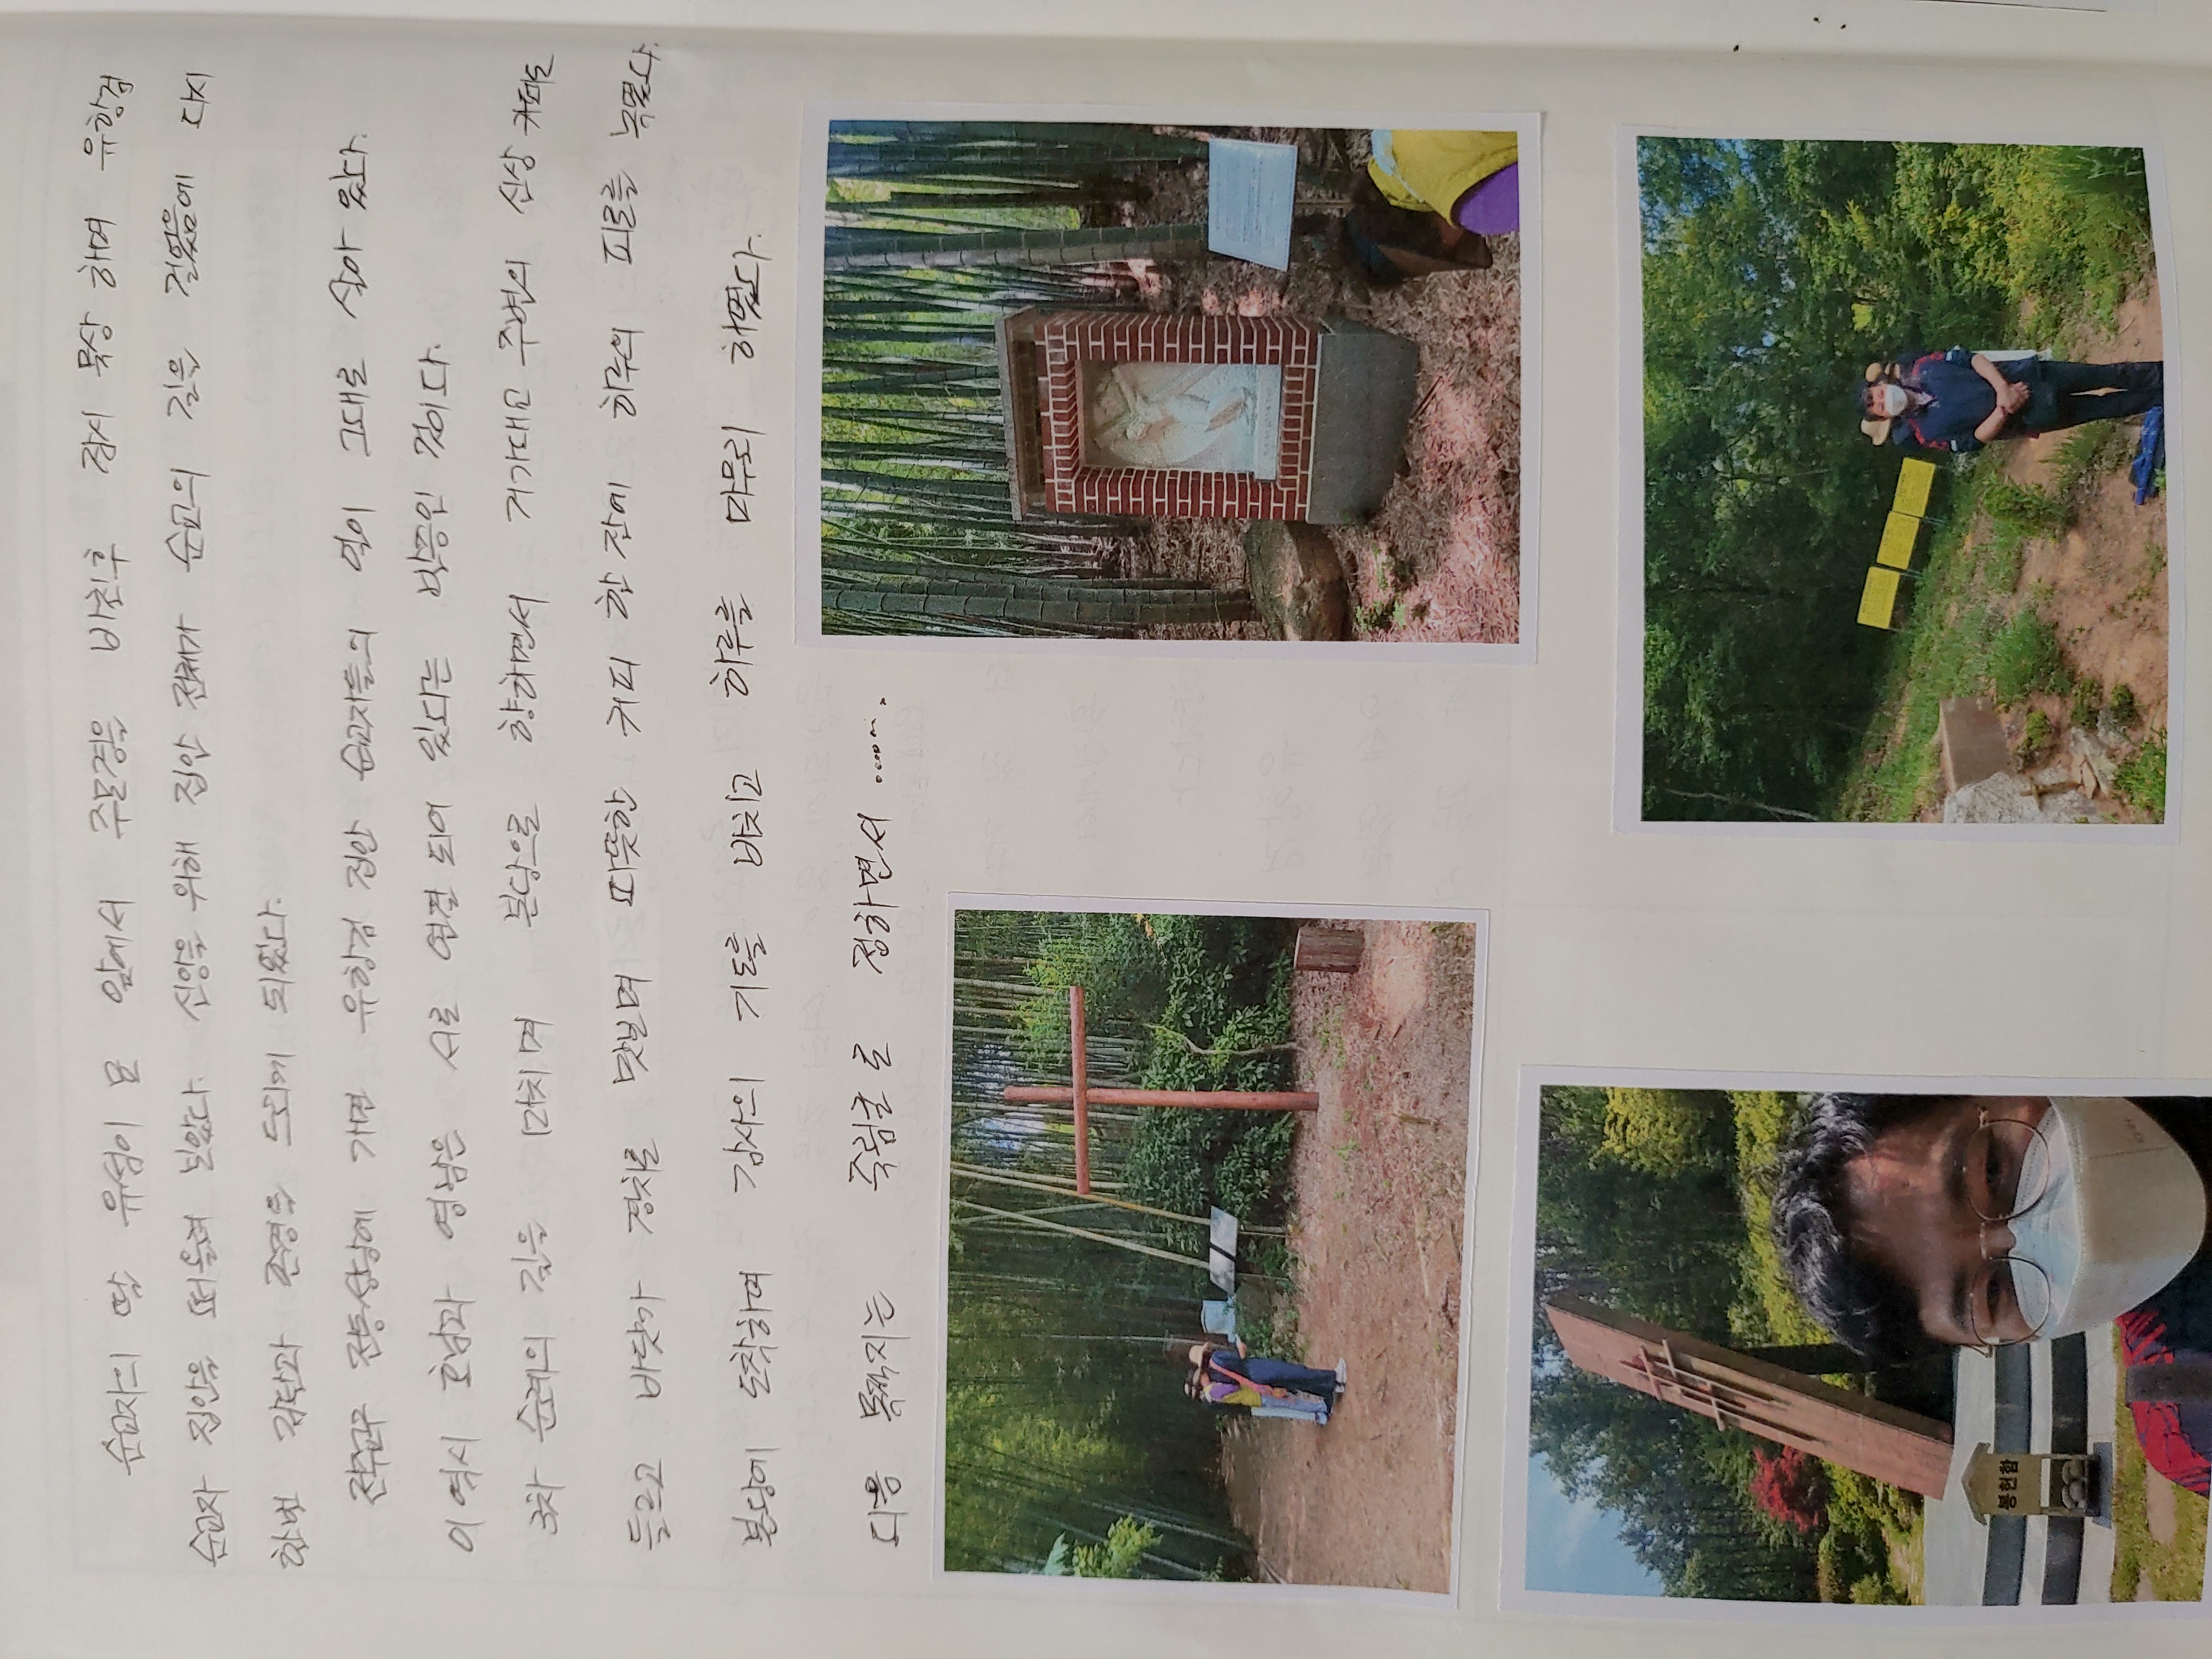 순교자의 딸 유섬이 묘 앞에서 주모경을 바친후 잠시 묵상 하며 유항검
순교자 집안을 떠올려 보았다. 신앙을 위해 집안 전체가 순교의 길을 걸었음에 다시
한번 감탄과 존경을 드리게 되었다.
전주 전동성당에 가면 유항검 집안 순교자들의 얼이 그대로 살아 있다.
이 역시 호남과 영남은 서로 연결 되어 있다는 반증인 것이다.
3차 순례의 길을 마치며 본당으로 향하면서 거가대교 주변의 신상 카페도
들르고 바닷가 경치를 맛보며 따뜻한 커피 한 잔에 하루의 피로를 녹였다.
본당에 도착하여 감사의 기도를 바치고 하루를 마무리 하였다.
다음 목적지는 죽림굴로 정하면서 .......
봉헌함